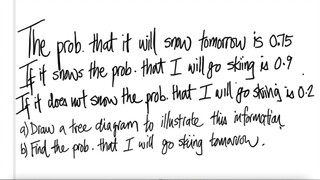 The prob. that it will snow tomorrow is 0.75
If it snows the prob. that I will go skiing is 0.9.
If it does not snow the prob. that I will go skiing is 0.2
a) Draw a tree diagram to illustrate this information
b) Find the prob. that I will go skiing tomorrow.